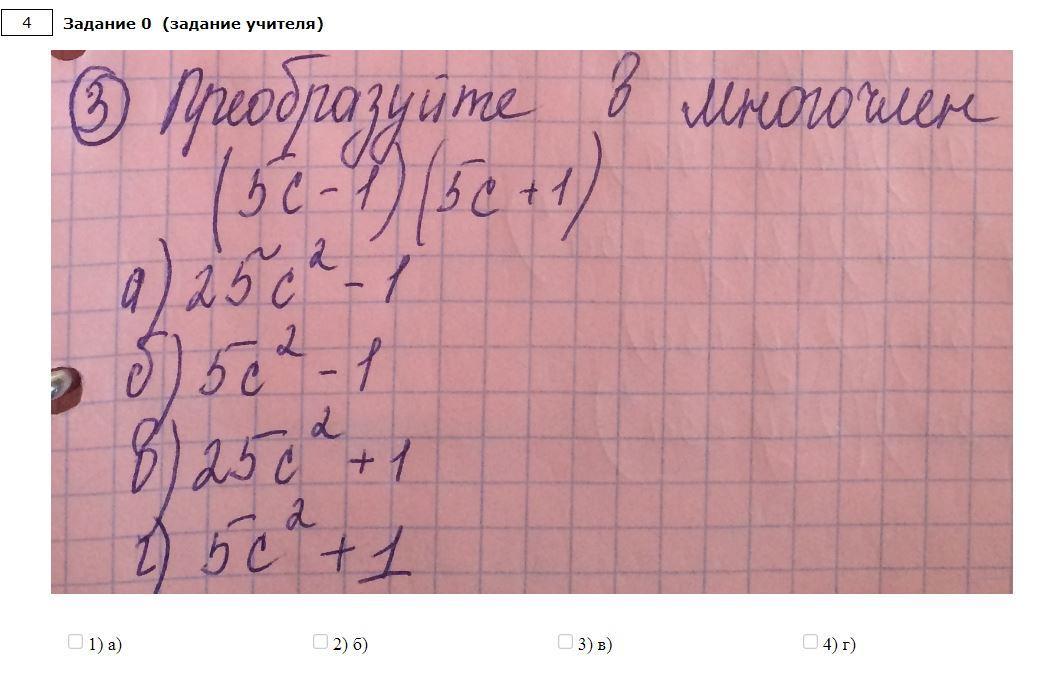 4 Задание 0 (задание учителя)
3 Преобразуйте в многочлен
(5c - 1)(5c + 1)
а) 25c² - 1
б) 5c² - 1
в) 25c² + 1
г) 5c² + 1
1) а) 2) б) 3) в) 4) г)